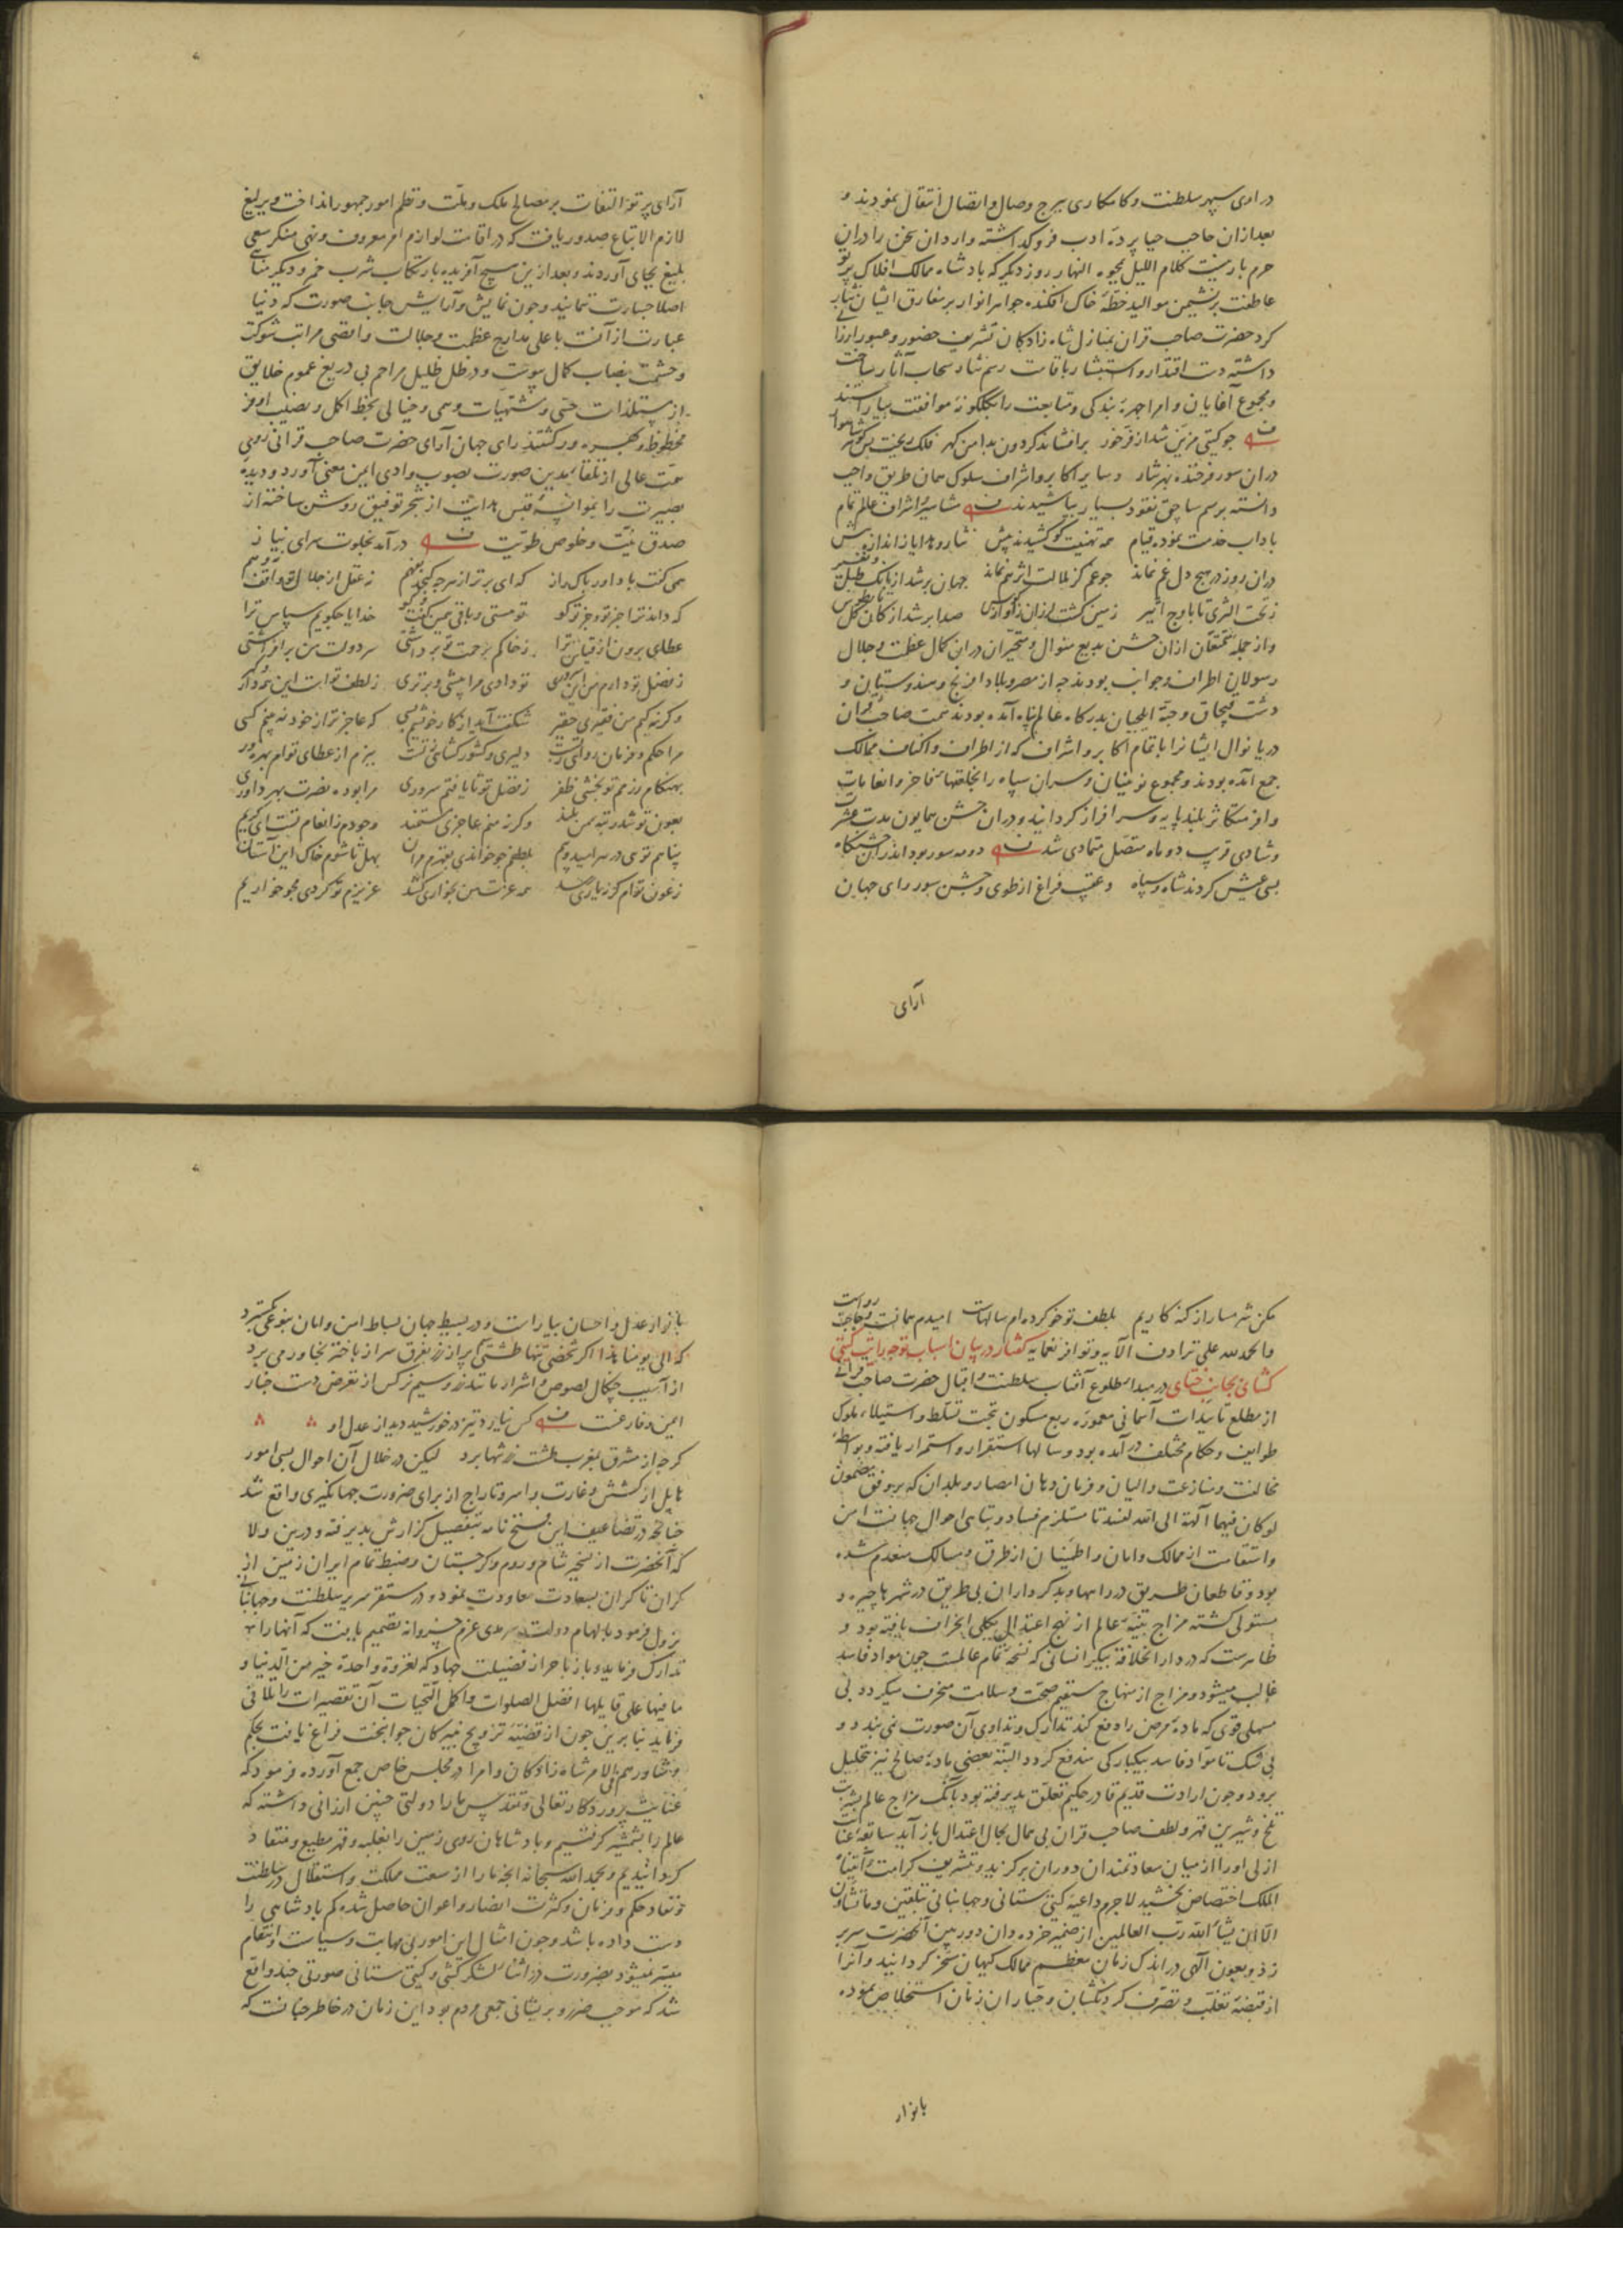 در اوی سپهر سلطنت و کامکاری ببرج وصال و اتصال انتقال نمودند و
بعد ازان حاجب حیا پردهٔ ادب فرو گذاشته واردان سخن را دران
حرم بار نیست کلام اللیل یمحوه النهار روز دیگر که بادشاه ممالک افلاک پرتو
عاطفت بر نشیمن موالید خطهٔ خاک افکنده جواهر انوار بر مفارق ایشان نثار
کرد حضرت صاحب قران بمنازل شاه زادکان تشریف حضور و عبور ارزانی
داشته دست اقتدار و استبشار باقامت رسم نثار سحاب آثار ساخت
و مجموع آغایان و امرا چهرهٔ بندکی و متابعت را بکلکونهٔ موافقت بیاراستند
جو کیتی مزین شد از فر خور برافشاند کردون بدامن کهر فلک ریخت بس کوهر شاهوار
دران سور فرخنده بهر نثار و سایر اکابر و اشراف سلوک همان طریق واجب
دانسته برسم ساچق نقود بسیار بپاشیدند مشاهیر و اشراف عالم تمام
باداب خدمت نموده قیام همه تهنیت کو کشیدند پیش نثار و هدایا ز اندازه بیش
دران روز در هیچ دل غم نماند جو غم کز ملالت اثر هم نماند جهان بر شد از بانک طبل و نفیر
ز تحت الثری تا باوج اثیر زمین کشت لرزان ز آواز کوس صدا بر شد از کان کل با طوس
و از جمله متمتعان ازان جشن بدیع منوال و متحیران دران کمال عظمت و جلال
رسولان اطراف و جوانب بودند چه از مصر و بلاد افرنج و هندوستان و
دشت قبچاق و جتّه ایلچیان بدرکاه عالم پناه آمده بودند همت صاحب قران
دریا نوال ایشانرا با تمام اکابر و اشراف که از اطراف و اکناف ممالک
جمع آمده بودند و مجموع نوئینان و سران سپاه را بخلعتهای فاخر و انعامات
وافر متکاثر بلند پایه و سرافراز کردانید و دران جشن همایون مدت عشرت
و شادی قریب دو ماه متصل متمادی شد دو مه سور بود اندران جشنکاه
بسی عیش کردند شاه و سپاه و عقیب فراغ از طوی و جشن سور رای جهان
آرای
آرای پرتو التفات بر مصالح ملک و ملت و نظم امور جمهور انداخت و یرلیغ
لازم الاتباع صدور یافت که در اقامت لوازم امر معروف و نهی منکر سعی
بلیغ بجای آوردند و بعد ازین هیچ آفریده بارتکاب شرب خمر و دیکر مناهی
اصلا جسارت ننمایند و چون نمایش و آرایش جانب صورت که دنیا
عبارت از آنست باعلی مدارج عظمت و جلالت و اقصی مراتب شوکت
و حشمت بنصاب کمال پیوست و در ظل ظلیل مراحم بی دریغ عموم خلایق
از مستلذات حسی و مشتهیات وهمی و خیالی بحظ اکمل و نصیب اوفر
محظوظ و بهره ور کشتند رای جهان آرای حضرت صاحب قرانی روی
همت عالی از تلقاء مدین صورت بصوب وادی ایمن معنی آورد و دیدهٔ
بصیرت را بنور قبس هدایت از شجر توفیق روشن ساخته از
صدق نیت و خلوص طویت در آمد بخلوت سرای نیاز
همی کفت با داور پاک راز که ای برتر از هرچه کنجد بفهم ز عقل از جلال تو واقف نه وهم
که داند ترا جز تو و جز تو کو تو هستی و باقی همین کفت و کو خدایا چکویم سپاس ترا
عطای برون از قیاس ترا ز خاکم برحمت تو برداشتی سر دولت من برافراشتی
ز فضل تو دارم من این سروری تو دادی مرا پیشی و برتری ز لطف تو است این همه دار و کیر
و کرنه کیم من فقیری حقیر شکفت آید از کار خویشم بسی که عاجزتر از خود نه بینم کسی
مرا حکم و فرمان روائی ز تست دلیری و کشور کشائی ز تست ببزم از عطای توام بهره ور
بهنکام رزمم تو بخشی ظفر ز فضل تو تا یافتم سروری مرا بوده نصرت بهر داوری
بعون تو شد رتبه من بلند و کرنه منم عاجزی مستمند وجودم ز انعام تست ای کریم
پناهم توی در هر امید و بیم بلطفم جو خواندی بقهرم مران بهل تا شوم خاک این آستان
ز عون توام کر نه یاری رسد همه عزت من بخواری کشد عزیزم تو کردی مجو خواریم
مکن شرمسار از کنه کاریم بلطف تو خو کرده‌ام سالهاست امیدم همانست و حاجت رواست
والحمد لله علی ترادف آلایه و تواتر نعمایه کفتار در بیان اسباب توجه رایت کیتی
کشای بجانب ختای در مبدا طلوع آفتاب سلطنت و اقبال حضرت صاحب قرانی
از مطلع تأییدات آسمانی معمورهٔ ربع مسکون تحت تسلط و استیلاء ملوک
طوایف و حکام مختلف در آمده بود و سالها استقرار و استمرار یافته و بواسطه
مخالفت و منازعت والیان و فرمان دهان امصار و بلدان که بر وفق مضمون
لو کان فیهما آلهة الا الله لفسدتا مستلزم فساد و تباهی احوال جهانست امن
و استقامت از ممالک و امان و اطمینان از طرق و مسالک منعدم شده
بود و قاطعان طریق در راهها و بدکرداران بی طریق در شهرها چیره و
مستولی کشته مزاج بنیهٔ عالم از نهج اعتدال بکلی انحراف یافته بود و
ظاهرست که در دار الخلافهٔ پیکر انسانی که نسخهٔ تمام عالمست چون مواد فاسد
غالب میشود و مزاج از منهاج مستقیم صحت و سلامت منحرف میکردد بی
مسهلی قوی که مادهٔ مرض را دفع کند تدارک و تداوی آن صورت نمی بندد و
بی شک تا مواد فاسد بیکبارکی مندفع کردد البته بعضی مادهٔ صالح نیز بتحلیل
برود و چون ارادت قدیم قادر حکیم تعلق پذیرفته بود بآنک مزاج عالم بشربت
تلخ و شیرین قهر و لطف صاحب قران بی همال بحال اعتدال باز آید سابقه عنایت
ازلی او را از میان سعادتمندان دوران برکزید و بتشریف کرامت و آتیناه
الملک اختصاص بخشید لاجرم داعیهٔ کیتی ستانی و جهانبانی بتلقین و ما تشاؤن
الا ان یشاء الله رب العالمین از ضمیر خرده دان دوربین آنحضرت سر بر
زد و بعون آلهی در اندک زمان معظم ممالک کیهان مسخر کردانید و آنرا
از قبضهٔ تغلب و تصرف کردنکشان و جباران زمان استخلاص نموده
بانوار
بانوار عدل و احسان بیاراست و در بسیط جهان بساط امن و امان بنوعی بکسترد
که الی یومنا هذا اکر شخصی تنها طشتی پر از زر بفرق سر از باختر بخاور می برد
از آسیب چنکال لصوص و اشرار مانند زر و سیم نرکس از تعرض دست چنار
ایمن و فارغست کس نیارد تیز در خورشید دید از عدل او
کرچه از مشرق بمغرب طشت زر تنها برد لیکن در خلال آن احوال بسی امور
هایل از کشش و غارت و اسر و تاراج از برای ضرورت جهانکیری واقع شد
چنانچه در تضاعیف این فتح نامه بتفصیل کزارش پذیرفته و درین ولا
که آنحضرت از تسخیر شام و روم و کرجستان و ضبط تمام ایران زمین از
کران تا کران بسعادت معاودت نمود و در مستقر سریر سلطنت و جهانبانی
نزول فرمود بالهام دولت سرمدی عزم خسروانه تصمیم یافت که آنها را
تدارک فرماید و باز باحراز فضیلت جهاد که لغزوة واحدة خیر من الدنیا و
ما فیها علی قایلها افضل الصلوات و اکمل التحیات آن تقصیرات را تلافی
فرماید بنابرین چون از قضیّهٔ تزویج نبیرکان جوانبخت فراغ یافت بحکم
و شاورهم فی الامر شاه زادکان و امرا در مجلس خاص جمع آورده فرمود که
عنایت پروردکار تعالی و تقدس ما را دولتی چنین ارزانی داشته که
عالم را بشمشیر کرفتیم و بادشاهان روی زمین را بغلبه و قهر مطیع و منقاد
کردانیدیم و بحمد الله سبحانه آنچه ما را از سعت مملکت و استقلال در سلطنت
و نفاد حکم و فرمان و کثرت انصار و اعوان حاصل شده کم بادشاهی را
دست داده باشد و چون امثال این امور بی مهابت و سیاست و انتقام
میسر نمیشود بضرورت در اثناء لشکر کشی و کیتی ستانی صورتی چند واقع
شد که موجب ضرر و پریشانی جمعی مردم بود این زمان در خاطر چنانست که